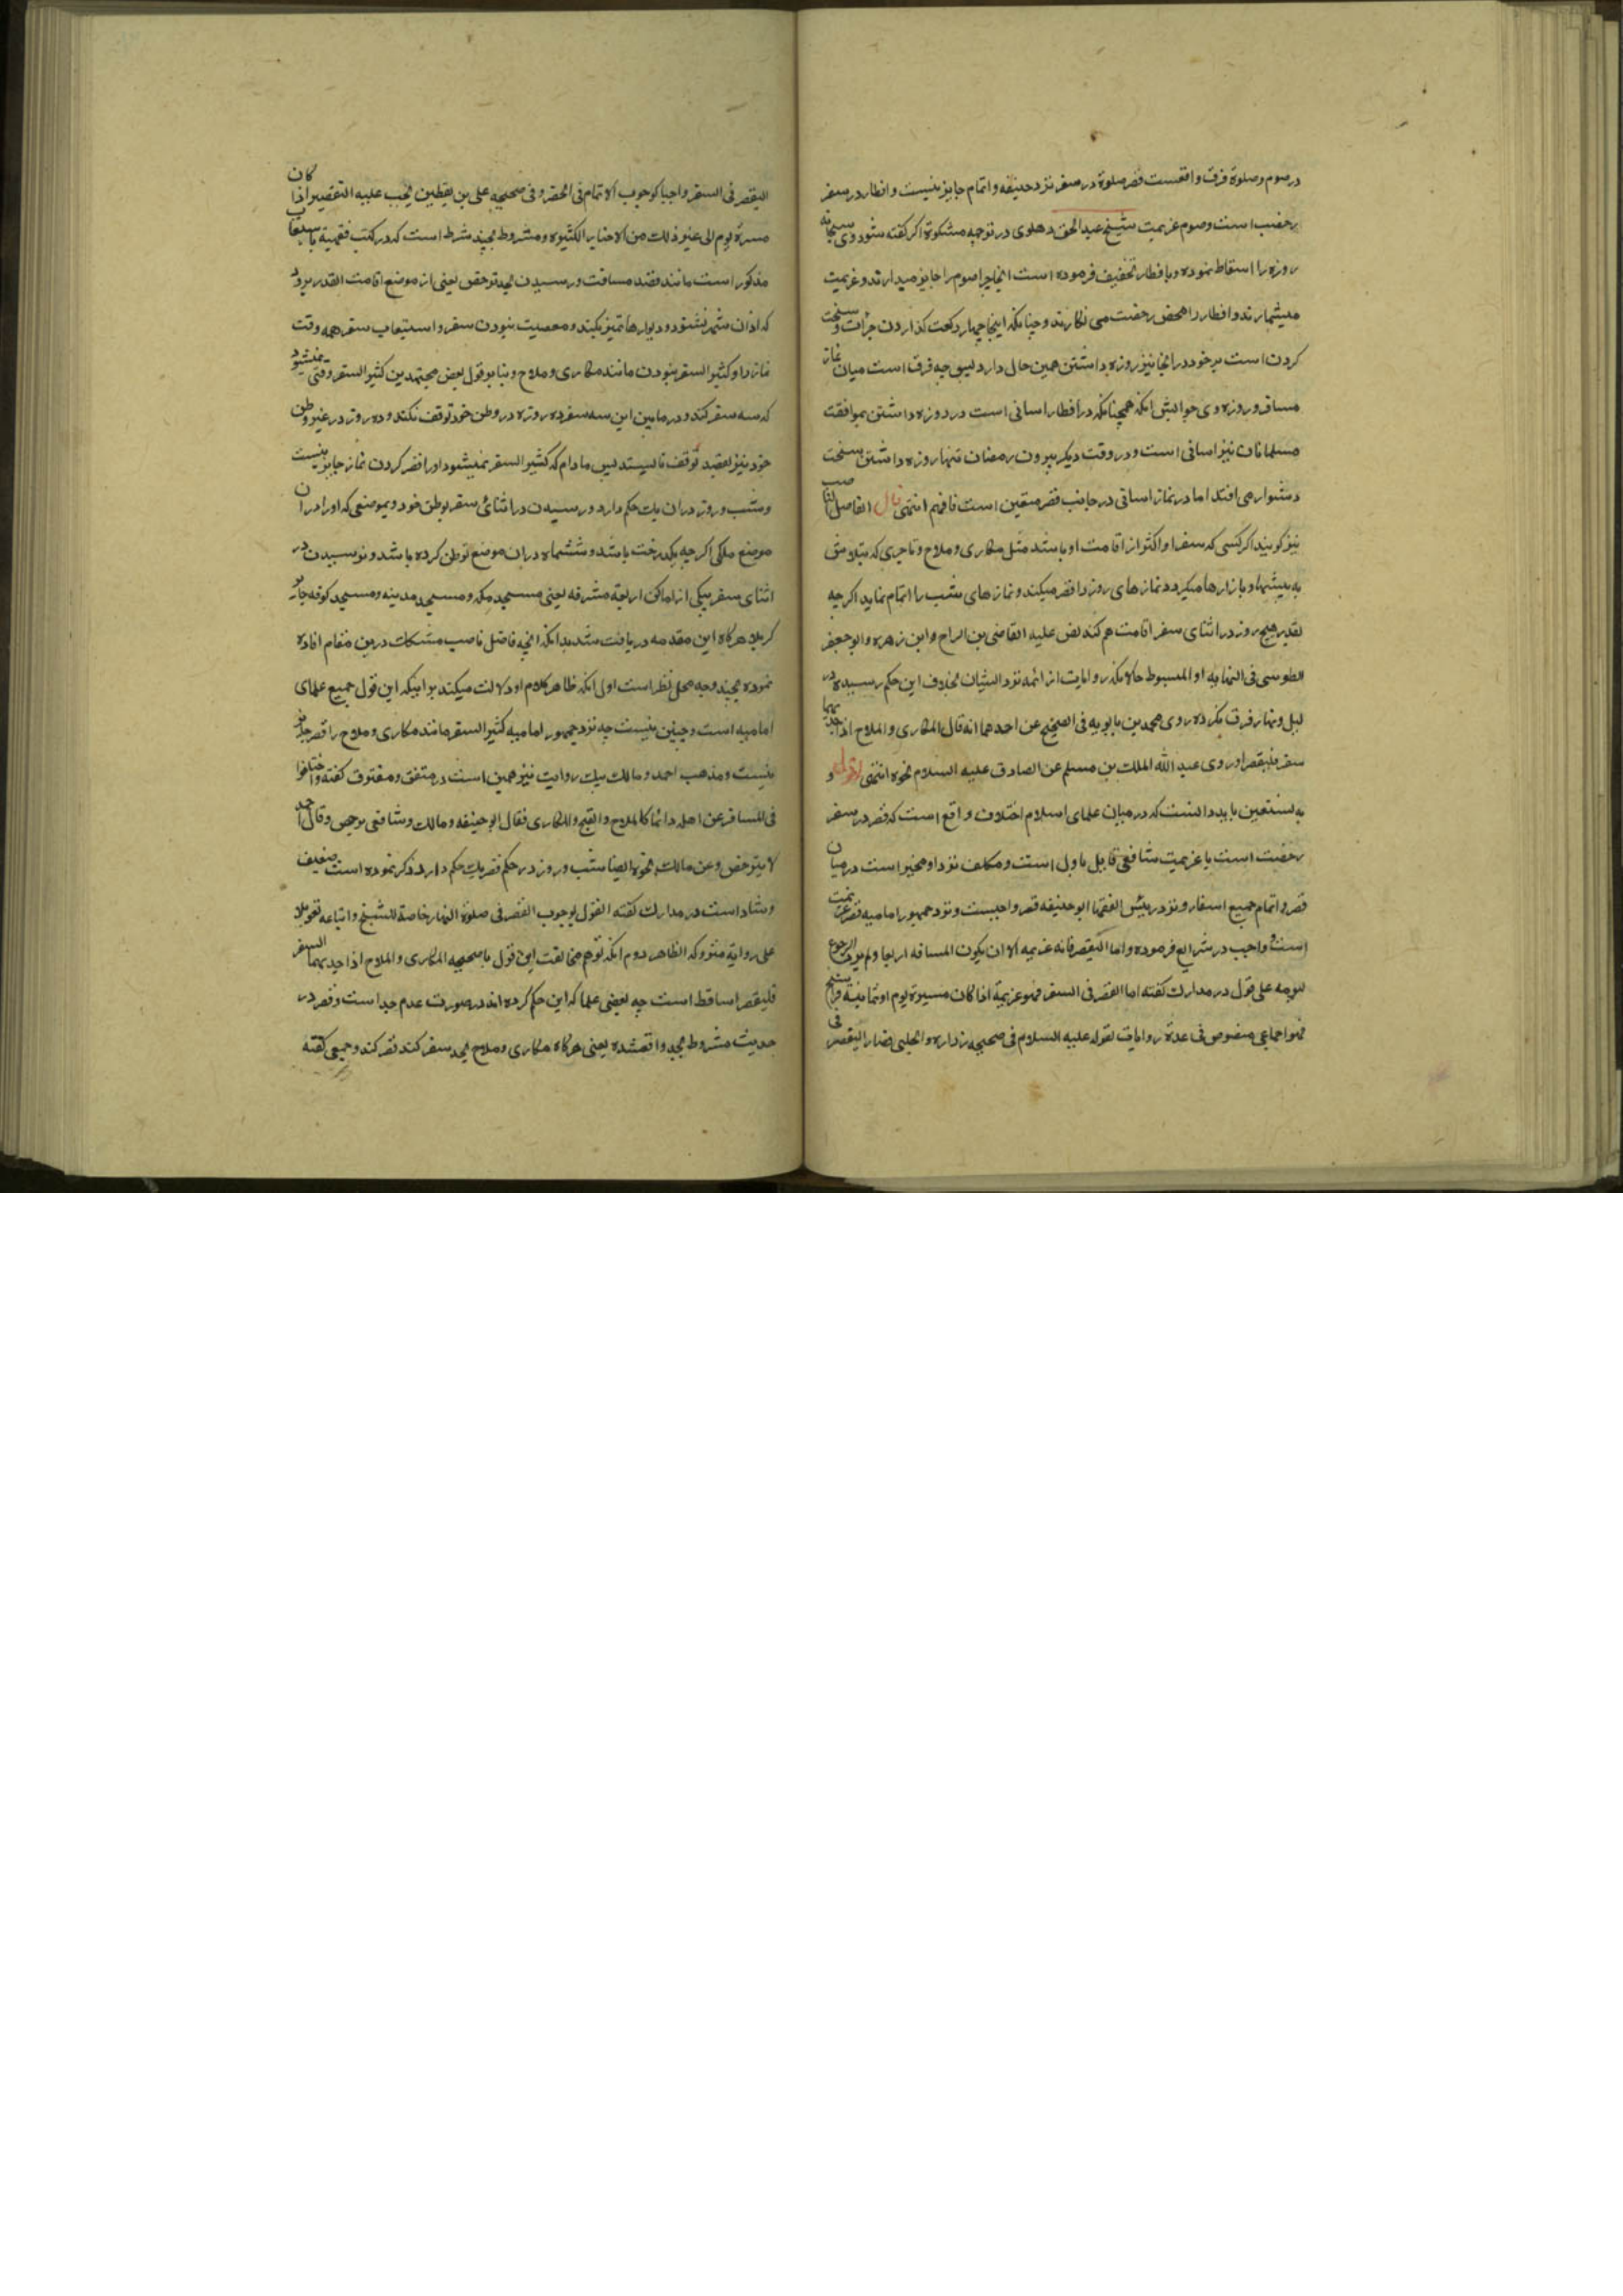 در صوم و صلوة فرق واقعست قصر صلوة در سفر نزد حنیفه و اتمام جایز نیست و افطار در سفر
رخصت است و صوم عزیمت شیخ عبد الحق دهلوی در ترجمه مشکوة اگر گفته شود وی سبحانه
روزه را اسقاط نموده و بافطار تخفیف فرموده است اینجا چرا صوم را جایز میدارند و عزیمت
میشمارند و افطار را محض رخصت می نکارند و چنانکه اینجا چهار رکعت گذاردن جرأت و سخت
کردن است بر خود در انجا نیز روزه داشتن همین حال دارد پس چه فرق است میان نماز
مسافر و روزه وی جوابش انکه همچنانکه در افطار اسانی است در روزه داشتن بموافقت
مسلمانان نیز اسانی است و در وقت دیگر بیرون رمضان تنها روزه داشتن سخت
دشوار می افتد اما در نماز اسانی در جانب قصر متعین است فافهم انتهی قال الفاضل الناصب
نیز گویند اگر کسی که سفر او اکثر از اقامت او باشد مثل مکاری و ملاح و تاجری که بتلاش
به بیشها و بازارها میگردد نمازهای روز را قصر میکند و نمازهای شب را اتمام نماید اگر چه
بقدر پنج روز در اثنای سفر اقامت هم کند نص علیه القاضی بن البراج و ابن زهره و ابو جعفر
الطوسی فی النهایه و المبسوط حالانکه روایات از ائمه نزد ایشان بخلاف این حکم رسیده در
لیل و نهار فرق نکرده روی محمد بن بابویه فی الصحیح عن احدهما انه قال المکاری و الملاح اذا جد بهما
سفر فلیقصرا و روی عبد الله الملک بن مسلم عن الصادق علیه السلام نحوه انتهی اقول و
به نستعین باید دانست که در میان علمای اسلام اختلاف واقع است که قصر در سفر
رخصت است یا عزیمت شافعی قایل باول است و مکلف نزد او مخیر است در میان
قصر و اتمام جمیع اسفار و نزد رئیس الفقها ابو حنیفه قصر واجبست و نزد جمهور امامیه قصر عزیمت
است و واجب در شرایع فرموده و اما التقصر فانه عزیمه الا ان یکون المسافه اربعا و لم یرد الرجوع
لیومه علی قول در مدارک گفته اما القصر فی السفر فهو عزیمة اذا کان مسیرة یوم او ثمانیة فراسخ
فهو اجماعی منصوص فی عدة روایات لقوله علیه السلام فی صحیحه زراره و الحلبی فصار التقصر فی
التقصر فی السفر واجبا کوجوب الاتمام فی الحضر و فی صحیحه علی بن یقطین یجب علیه التقصیر اذا کان
مسیرة یوم الی غیر ذلک من الاخبار الکثیره و مشروط بچند شرط است که در کتب فقهیه باستیعاب
مذکور است مانند قصد مسافت و رسیدن بحد ترخص یعنی از موضع اقامت القدر برود
که اذان شهر نشنود و دیوارها تمیز نکند و معصیت نبودن سفر و استیعاب سفر همه وقت
نماز را و کثیر السفر نبودن مانند مکاری و ملاح و بنا بر قول بعض مجتهدین کثیر السفر وقتی نمیشود
که سه سفر کند و در مابین این سه سفر ده روزه در وطن خود توقف نکند و ده روز در غیر وطن
خود نیز بقصد توقف نایستد پس مادام که کثیر السفر نمیشود او را قصر کردن نماز جایز نیست
و شب و روز در ان یک حکم دارد و رسیدن در اثنای سفر بوطن خود و بموضعی که او را در ان
موضع ملکی اگر چه یکدرخت باشد و ششماه در ان موضع توطن کرده باشد و نرسیدن در
اثنای سفر بیکی از اماکن اربعه مشرفه یعنی مسجد مکه و مسجد مدینه و مسجد کوفه حایر
کربلا هرگاه این مقدمه دریافت شد بدانکه انچه فاضل ناصب مشکلات درین مقام افاده
نموده بچند وجه محل نظر است اول انکه ظاهر کلام او دلالت میکند بر اینکه این قول جمیع علمای
امامیه است و چنین نیست چه نزد جمهور امامیه کثیر السفر مانند مکاری و ملاح را قصر جایز
نیست و مذهب احمد و مالک بیک روایت نیز همین است در متفق و مفترق گفته و اختلفوا
فی المسافر عن اهله دائما کالملاح و القیم و المکاری فقال ابو حنیفه و مالک و شافعی یرخص و قال احمد
لا یترخص و عن مالک نحوه ایضا شب و روز در حکم قصر یک حکم دارد ذکر نموده است ضعیف
و شاذ است در مدارک گفته القول بوجوب القصر فی صلوة النهار خاصة للشیخ و اتباعه تعویلا
علی روایة متروکه الظاهر دوم انکه توهم مخالفت این قول با صحیحه المکاری و الملاح اذا جد بهما السفر
فلیقصرا ساقط است چه بعضی علما که این حکم کرده اند در صورت عدم جد است و قصر در
حدیث مشروط بجد واقعشده یعنی هرگاه مکاری و ملاح بجد سفر کند قصر کند و جمعی گفته